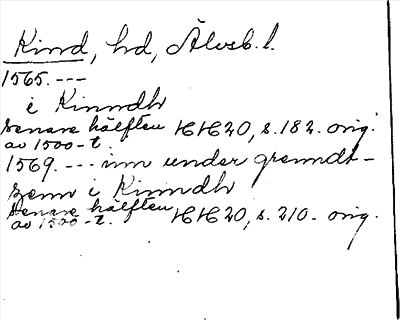 Kind, hd, Älvsb. l.
1565. ---
i Kinndh
Senare hälften HH 20, s. 182. orig.
av 1500-t.
1569. --- inn under
i Kinndh
Senare hälften HH 20, s. 210. orig.
av 1500-t.